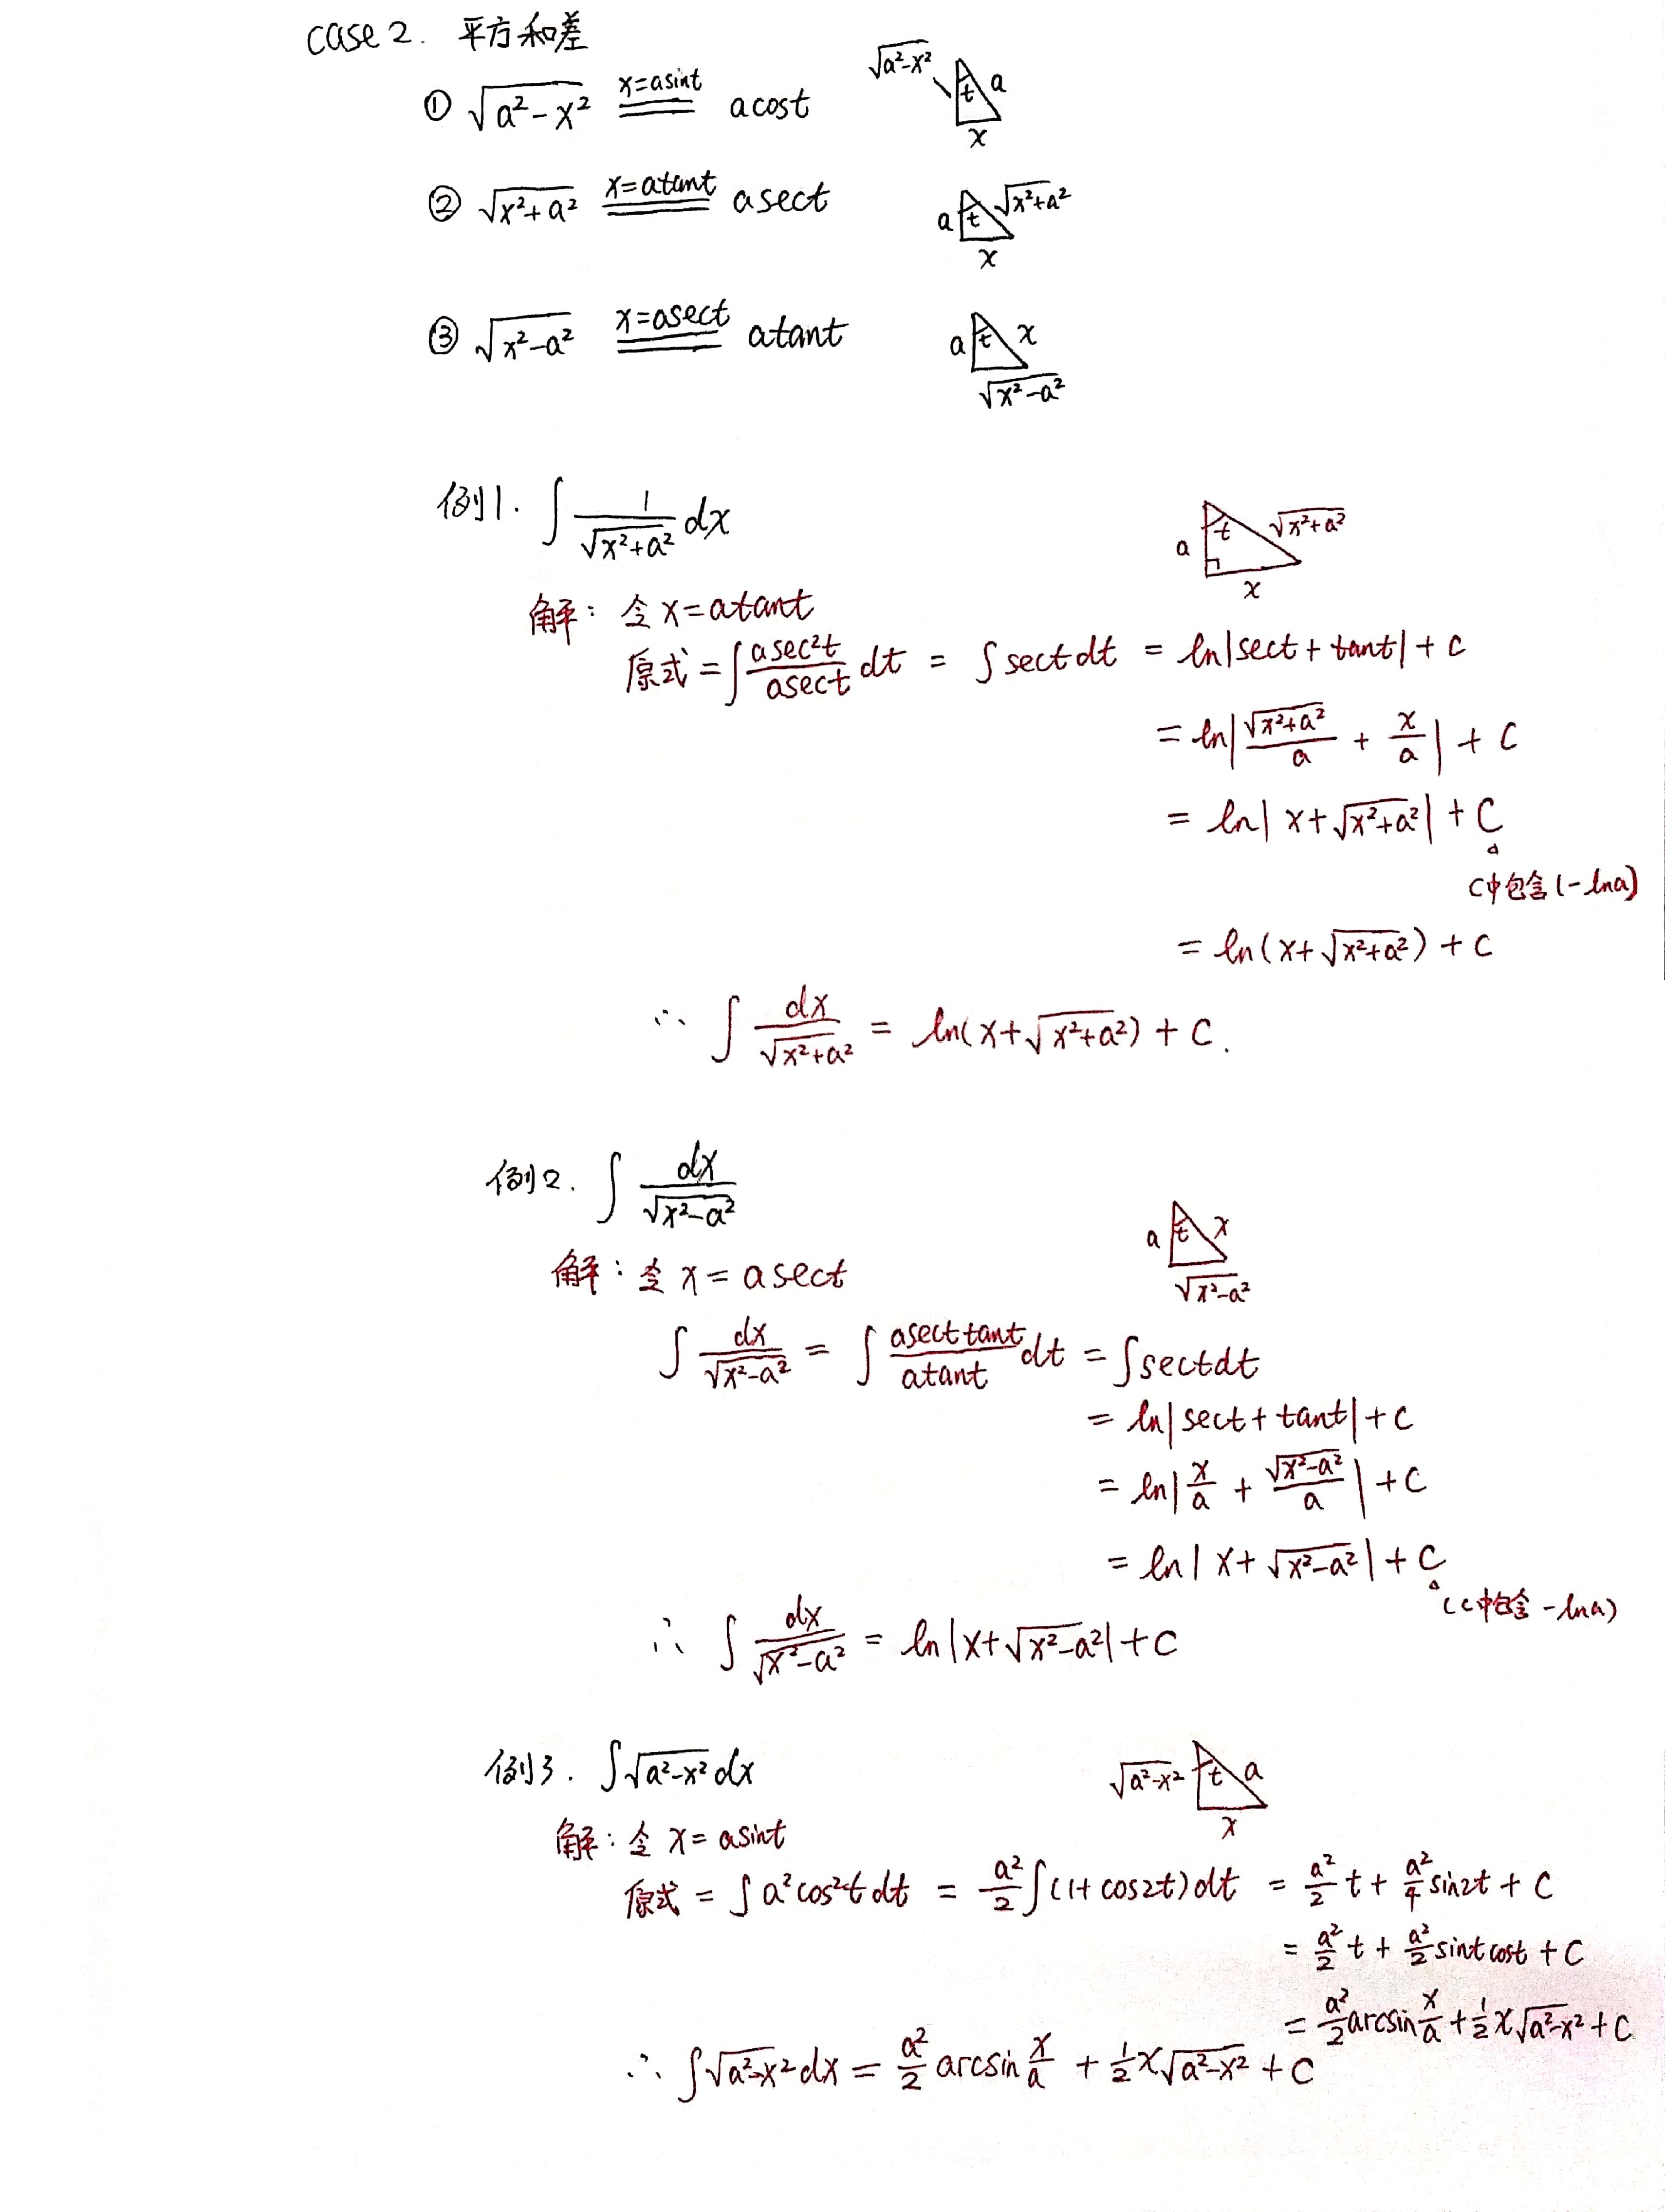 case 2. 平方和差
① √(a²-x²) x=asint acost √(a²-x²) t a x
② √(x²+a²) x=atant asect a t √(x²+a²) x
③ √(x²-a²) x=asect atant a t x √(x²-a²)
例1. ∫ 1/√(x²+a²) dx a t √(x²+a²) x
解: 令 x=atant
原式 = ∫ asec²t/asect dt = ∫ sect dt = ln|sect+tant| + C
= ln|√(x²+a²)/a + x/a| + C
= ln|x+√(x²+a²)| + C
C中包含(-lna)
= ln(x+√(x²+a²)) + C
∴ ∫ dx/√(x²+a²) = ln(x+√(x²+a²)) + C.
例2. ∫ dx/√(x²-a²) a t x √(x²-a²)
解: 令 x=asect
∫ dx/√(x²-a²) = ∫ asect tant/atant dt = ∫sectdt
= ln|sect+tant|+C
= ln|x/a + √(x²-a²)/a| + C
= ln|x+√(x²-a²)| + C
(C中包含 -lna)
∴ ∫ dx/√(x²-a²) = ln|x+√(x²-a²)| + C
例3. ∫√(a²-x²) dx √(a²-x²) t a x
解: 令 x=asint
原式 = ∫ a²cos²t dt = a²/2 ∫(1+cos2t)dt = a²/2 t + a²/4 sin2t + C
= a²/2 t + a²/2 sint cost + C
= a²/2 arcsin x/a + 1/2 x√(a²-x²) + C
∴ ∫√(a²-x²) dx = a²/2 arcsin x/a + 1/2 x√(a²-x²) + C